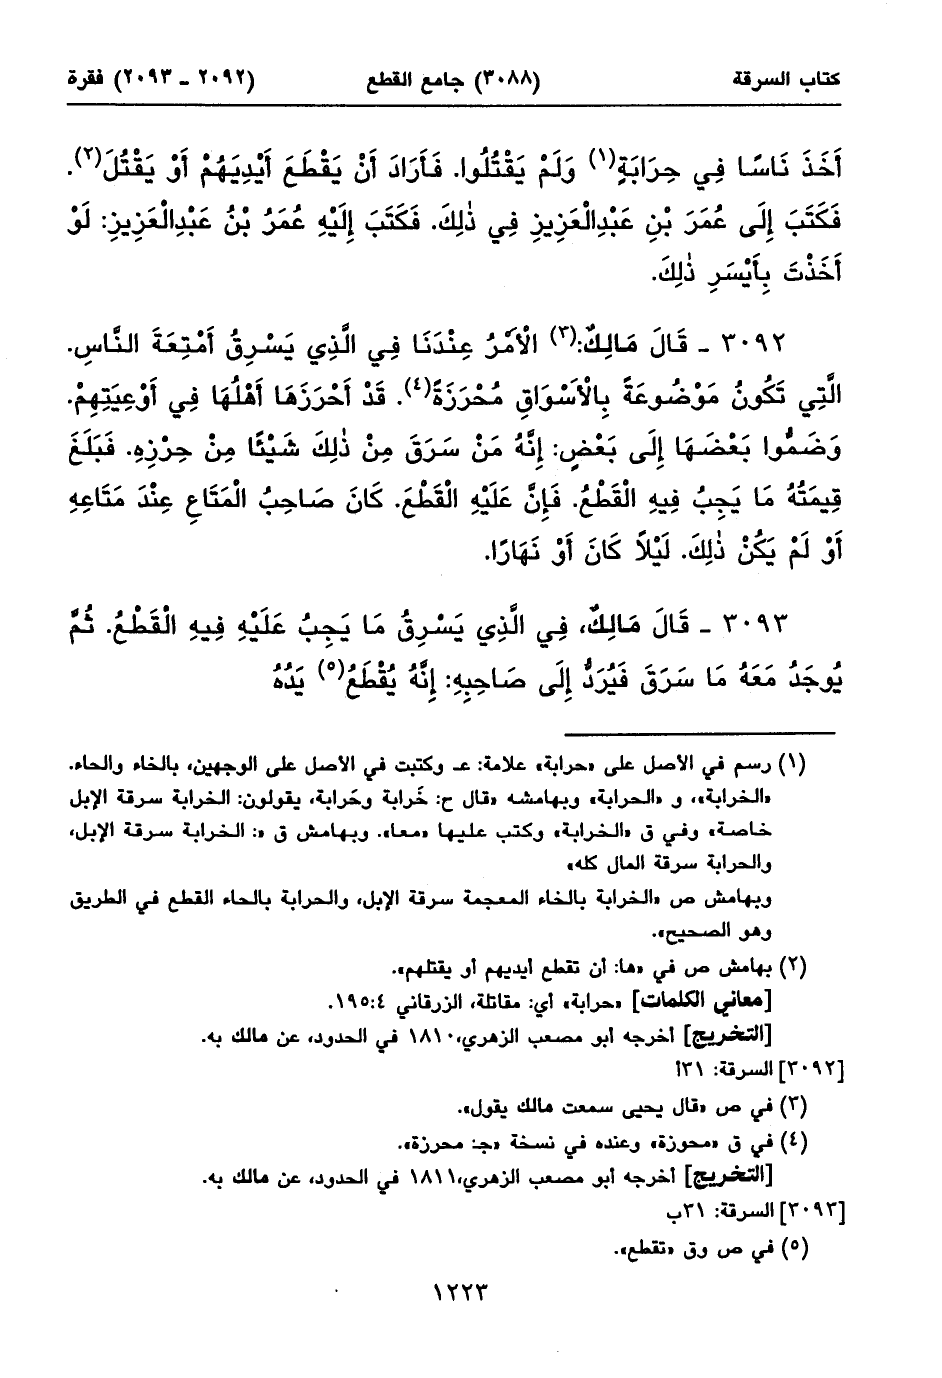 كتاب السرقة (٣٠٨٨) جامع القطع (٢٠٩٢ - ٢٠٩٣) فقرة
أَخَذَ نَاسًا فِي حِرَابَةٍ(١) وَلَمْ يَقْتُلُوا. فَأَرَادَ أَنْ يَقْطَعَ أَيْدِيَهُمْ أَوْ يَقْتُلَ(٢).
فَكَتَبَ إِلَى عُمَرَ بْنِ عَبْدِالْعَزِيزِ فِي ذٰلِكَ. فَكَتَبَ إِلَيْهِ عُمَرُ بْنُ عَبْدِالْعَزِيزِ: لَوْ
أَخَذْتَ بِأَيْسَرِ ذٰلِكَ.
٣٠٩٢ - قَالَ مَالِكٌ:(٣) الْأَمْرُ عِنْدَنَا فِي الَّذِي يَسْرِقُ أَمْتِعَةَ النَّاسِ.
الَّتِي تَكُونُ مَوْضُوعَةً بِالْأَسْوَاقِ مُحْرَزَةً(٤). قَدْ أَحْرَزَهَا أَهْلُهَا فِي أَوْعِيَتِهِمْ.
وَضَمُّوا بَعْضَهَا إِلَى بَعْضٍ: إِنَّهُ مَنْ سَرَقَ مِنْ ذٰلِكَ شَيْئًا مِنْ حِرْزِهِ. فَبَلَغَ
قِيمَتُهُ مَا يَجِبُ فِيهِ الْقَطْعُ. فَإِنَّ عَلَيْهِ الْقَطْعَ. كَانَ صَاحِبُ الْمَتَاعِ عِنْدَ مَتَاعِهِ
أَوْ لَمْ يَكُنْ ذٰلِكَ. لَيْلاً كَانَ أَوْ نَهَارًا.
٣٠٩٣ - قَالَ مَالِكٌ، فِي الَّذِي يَسْرِقُ مَا يَجِبُ عَلَيْهِ فِيهِ الْقَطْعُ. ثُمَّ
يُوجَدُ مَعَهُ مَا سَرَقَ فَيُرَدُّ إِلَى صَاحِبِهِ: إِنَّهُ يُقْطَعُ(٥) يَدُهُ
(١) رسم في الأصل على «حرابة» علامة: عـ وكتبت في الأصل على الوجهين، بالخاء والحاء.
«الخرابة»، و «الحرابة» وبهامشه «قال ح: خُرابة وخَرابة، يقولون: الخرابة سرقة الإبل
خاصة» وفي ق «الخرابة» وكتب عليها «معا». وبهامش ق «: الخرابة سرقة الإبل،
والحرابة سرقة المال كله»
وبهامش ص «الخرابة بالخاء المعجمة سرقة الإبل، والحرابة بالحاء القطع في الطريق
وهو الصحيح».
(٢) بهامش ص في «ها: أن تقطع أيديهم أو يقتلهم».
[معاني الكلمات] «حرابة» أي: مقاتلة، الزرقاني ١٩٥:٤.
[التخريج] أخرجه أبو مصعب الزهري،١٨١٠ في الحدود، عن مالك به.
[٣٠٩٢] السرقة: ٣١أ
(٣) في ص «قال يحيى سمعت مالك يقول».
(٤) في ق «محوزة» وعنده في نسخة «جـ: محرزة».
[التخريج] أخرجه أبو مصعب الزهري،١٨١١ في الحدود، عن مالك به.
[٣٠٩٣] السرقة: ٣١ب
(٥) في ص وق «تقطع».
١٢٢٣